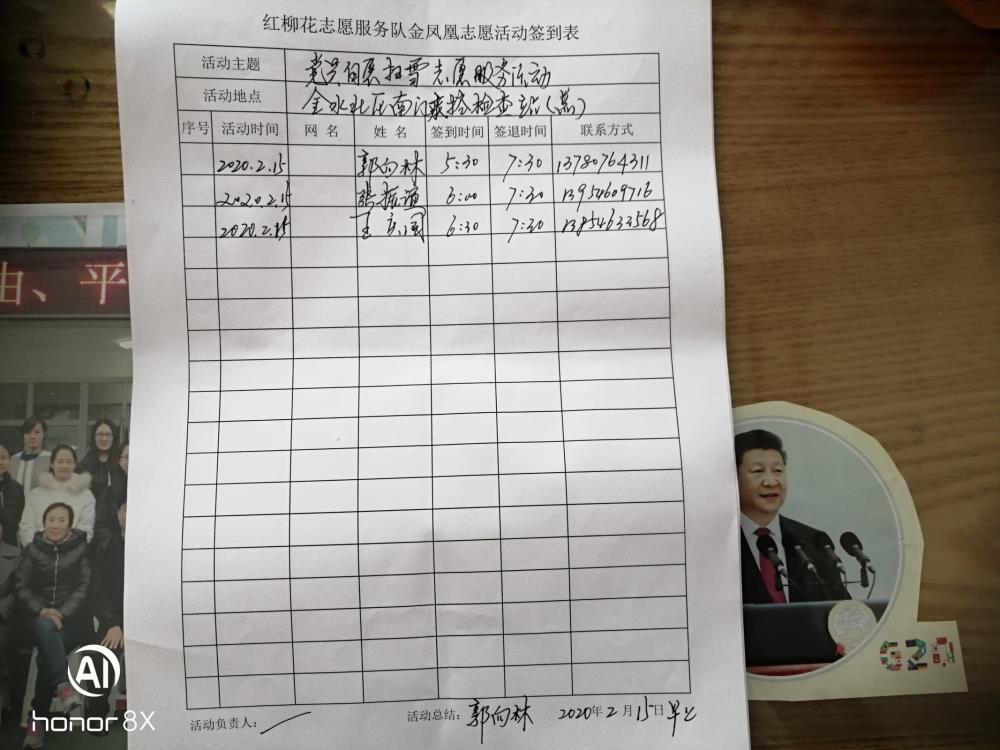 红柳花志愿服务队金凤凰志愿活动签到表
活动主题 党员自愿扫雪志愿服务活动
活动地点 金水社区南门疫情检查站(岗)
序号 活动时间 网 名 姓 名 签到时间 签退时间 联系方式
2020.2.15 郭向林 5:30 7:30 13780764311
2020.2.15 张振 6:00 7:30 13954609716
2020.2.15 王 国 6:30 7:30 13854633568
活动负责人:
活动总结: 郭向林 2020年2月15日早上
由、平
G20
AI
honor 8X